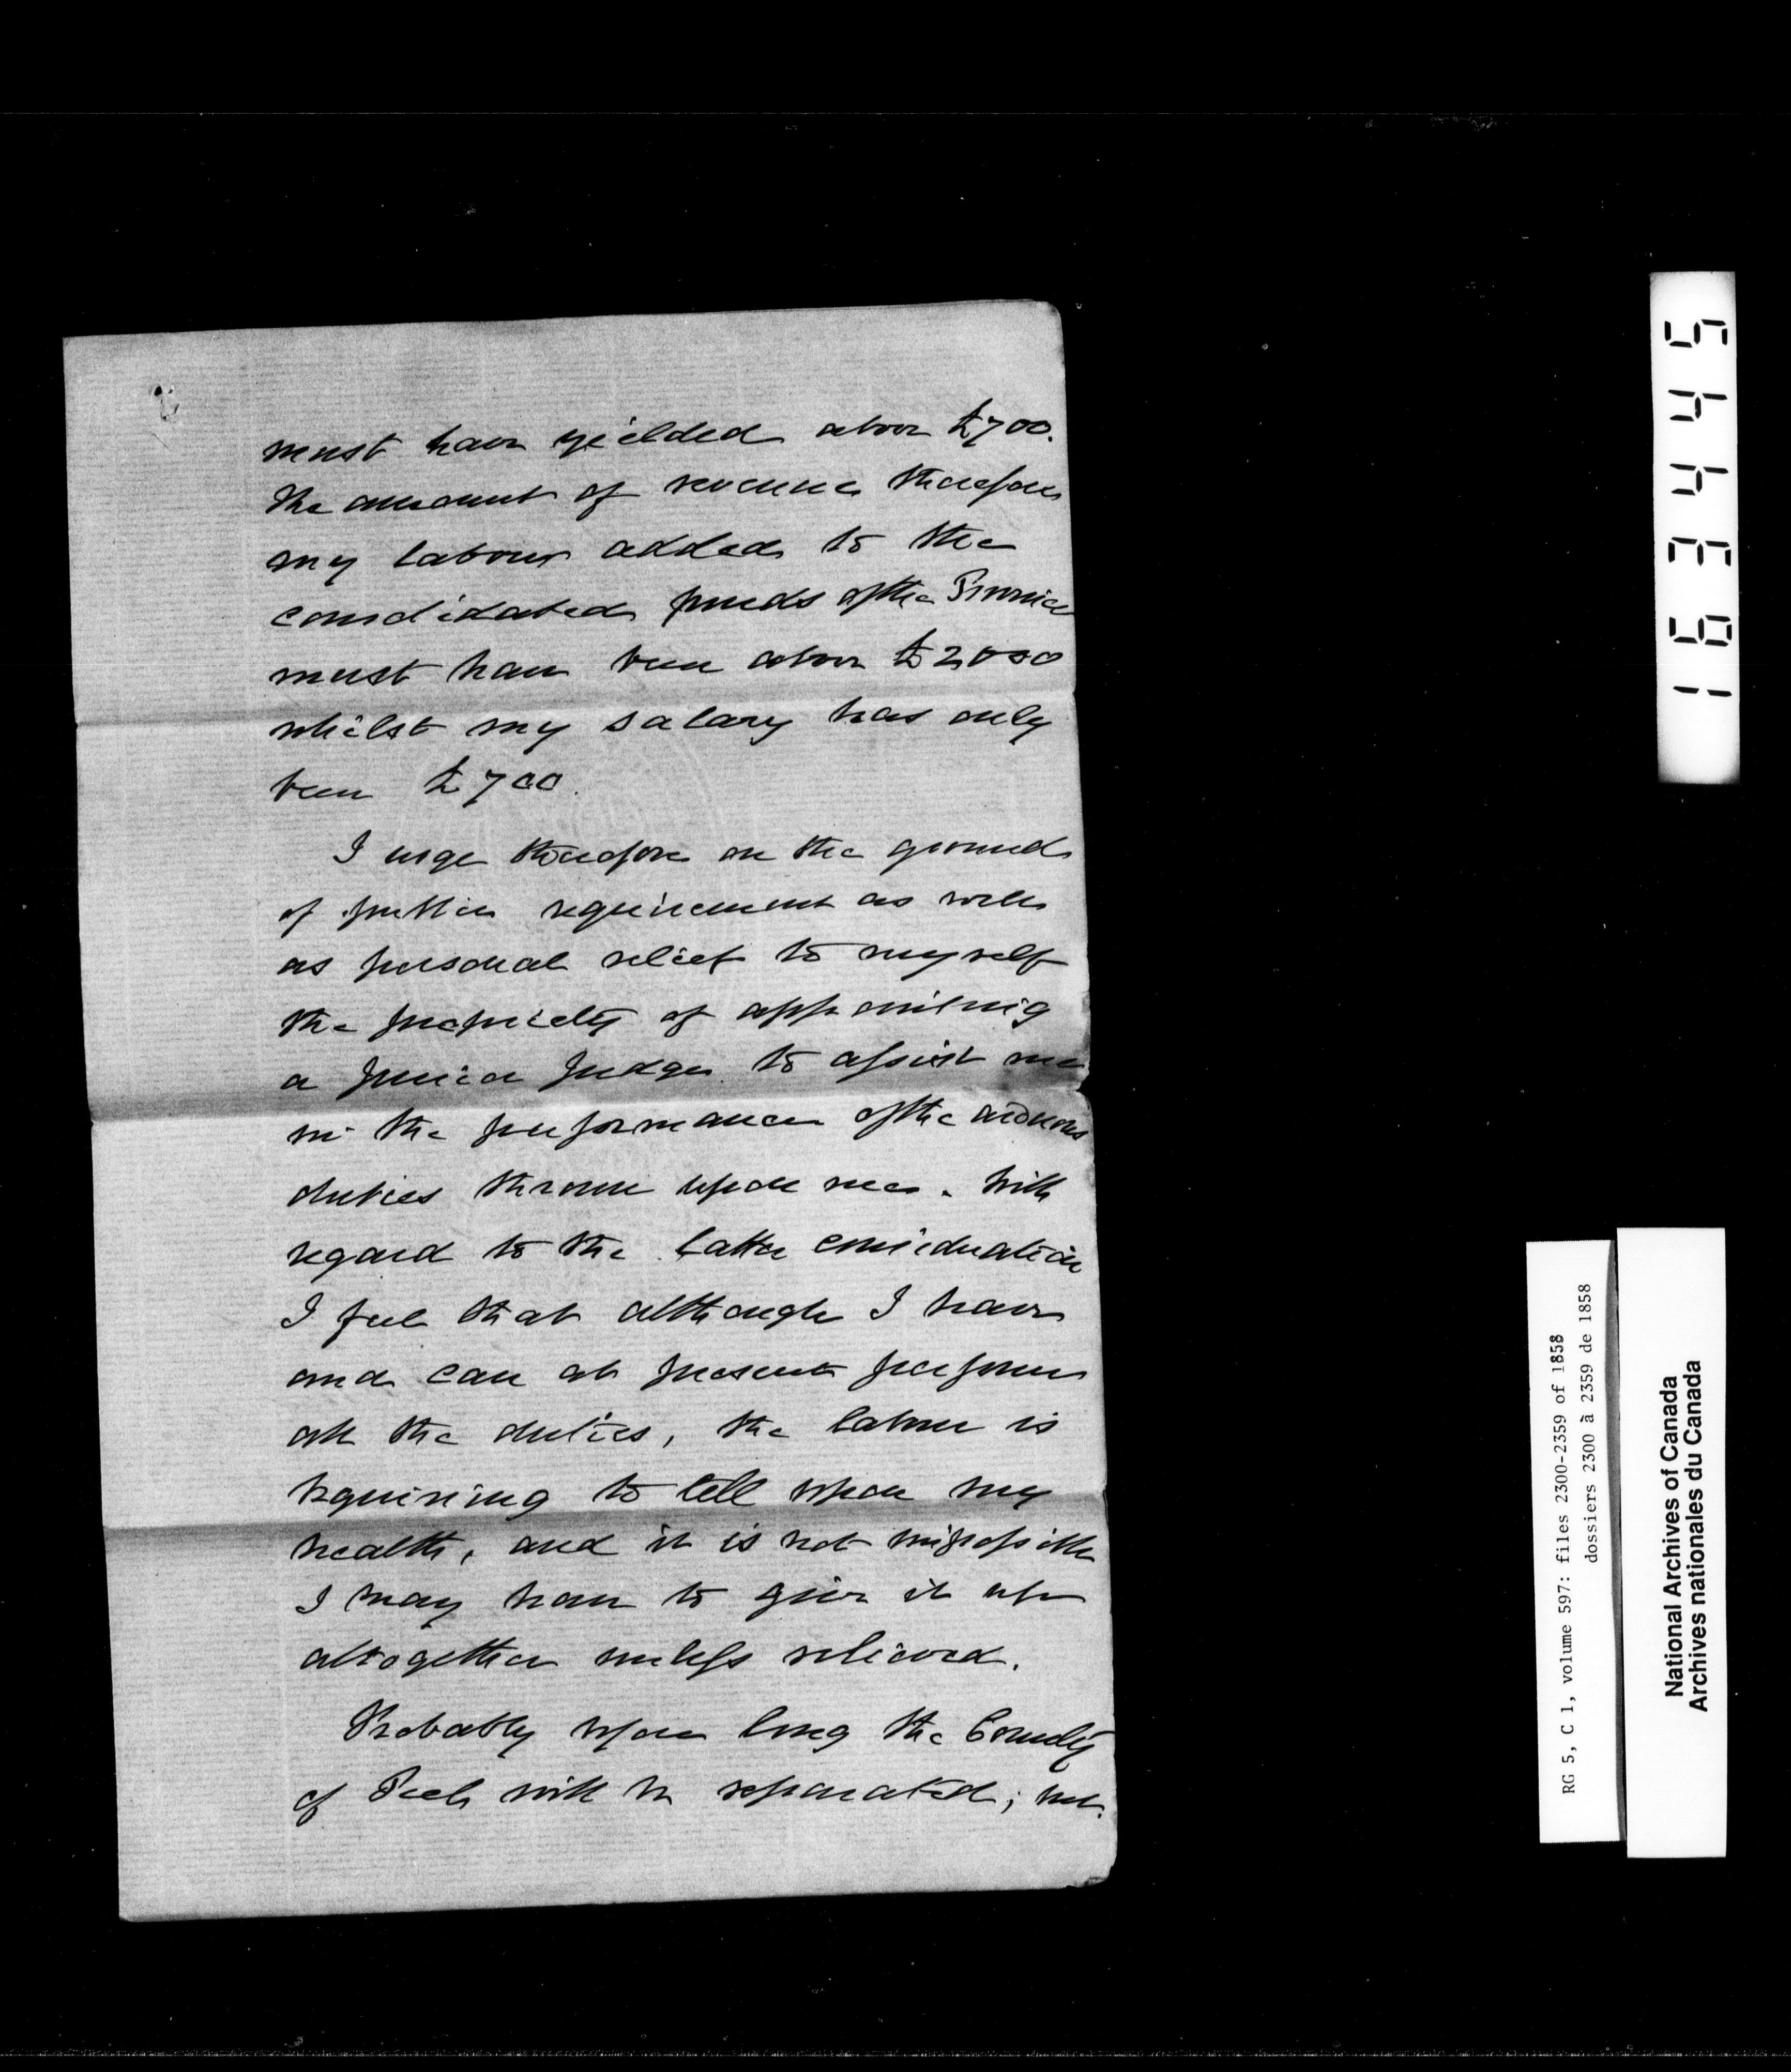 must have yielded above £700.
The amount of revenue therefore
my labour added to the
consolidated funds of the Province
must have been above £2000
whilst my salary has only
been £700.
I urge therefore on the ground
of public requirement as well
as personal relief to myself
the propriety of appointing
a Junior Judge to assist me
in the performance of the arduous
duties thrown upon me. With
regard to the latter consideration
I feel that although I have
and can at present perform
all the duties, the labour is
beginning to tell upon my
health, and it is not impossible
I may have to give it up
altogether unless relieved.
Probably before long the County
of Peel will be separated; but
163445
RG 5, C 1, volume 597: files 2300-2359 of 1858
dossiers 2300 à 2359 de 1858
National Archives of Canada
Archives nationales du Canada